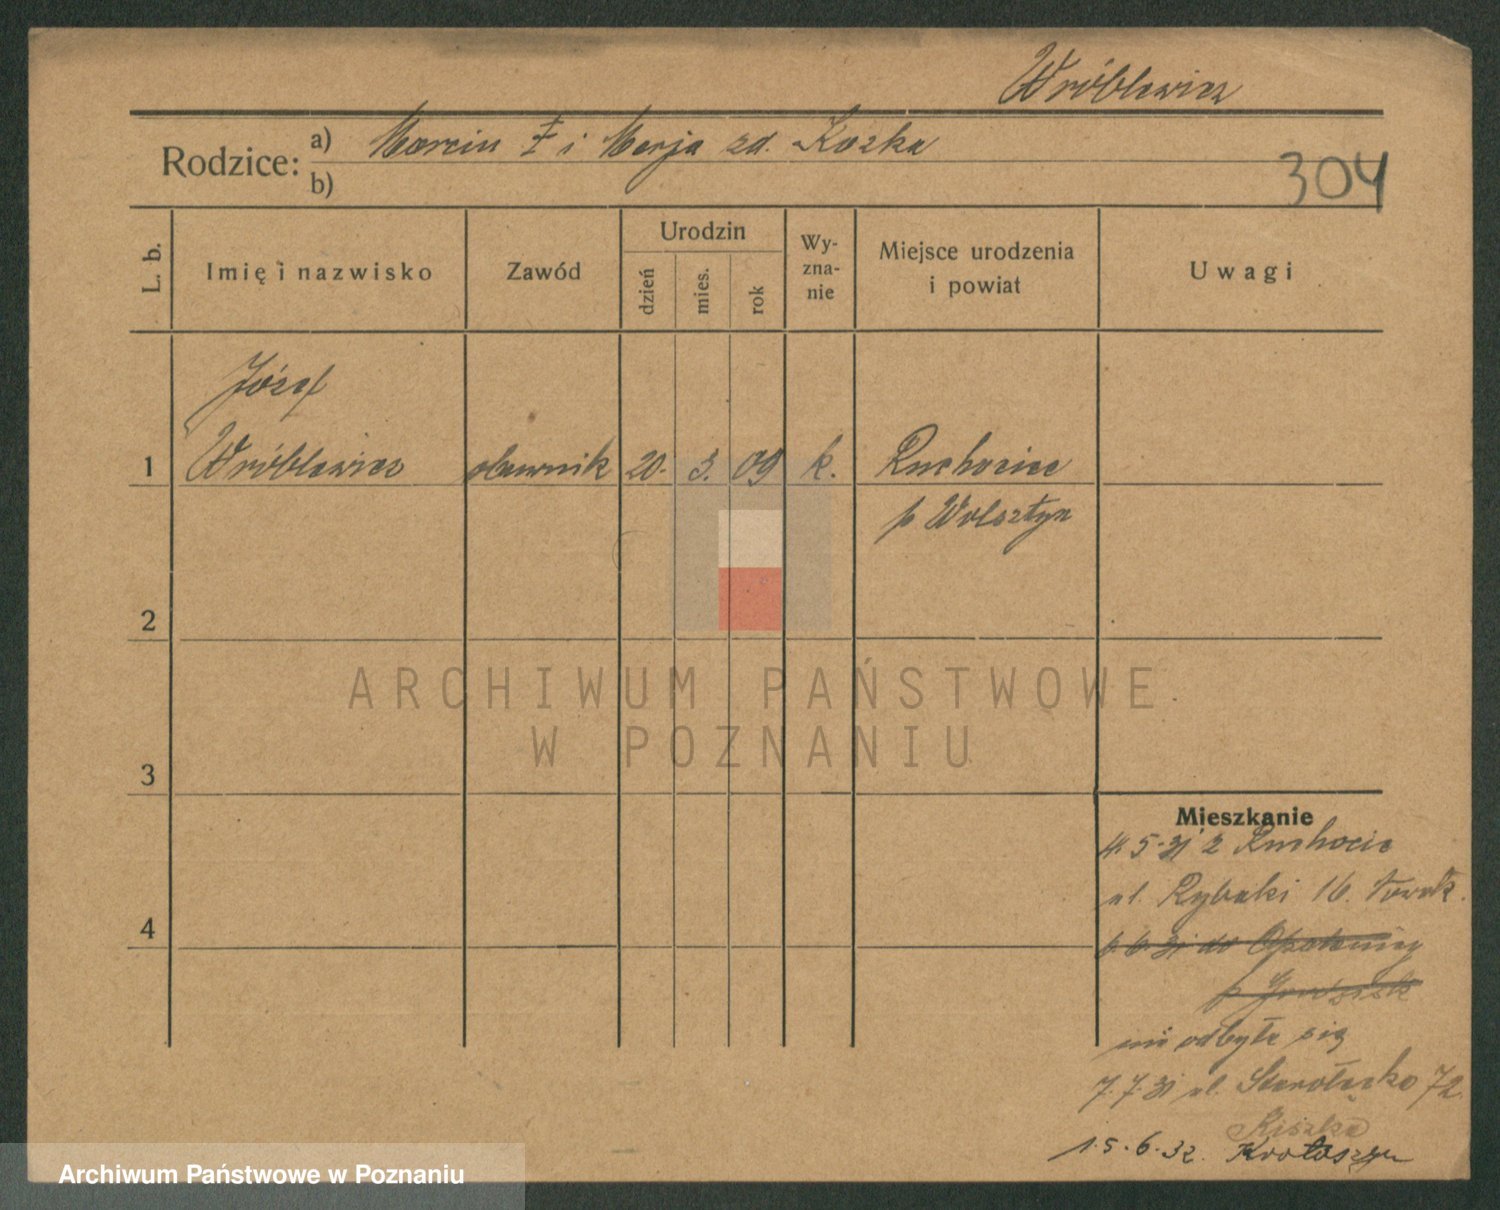 Wróblewicz
Rodzice: a) Marcin Ł i Marja zd. Kozka
b)
304
L. b. Imię i nazwisko Zawód Urodzin dzień mies. rok Wyznanie Miejsce urodzenia i powiat Uwagi
Józef
1 Wróblewicz 20. 3. 09 k. Ruchocice
p Wolsztyn
2
ARCHIWUM PAŃSTWOWE
W POZNANIU
3
Mieszkanie
4.5.31 z Ruchocic
ul. Rybaki 16.
4 6.31 do Opalenicy
p Grodzisk
nie odbyła się
7.7.31 ul. Starołęcka 72.
Kiszka
15.6.32. Krotoszyn
Archiwum Państwowe w Poznaniu